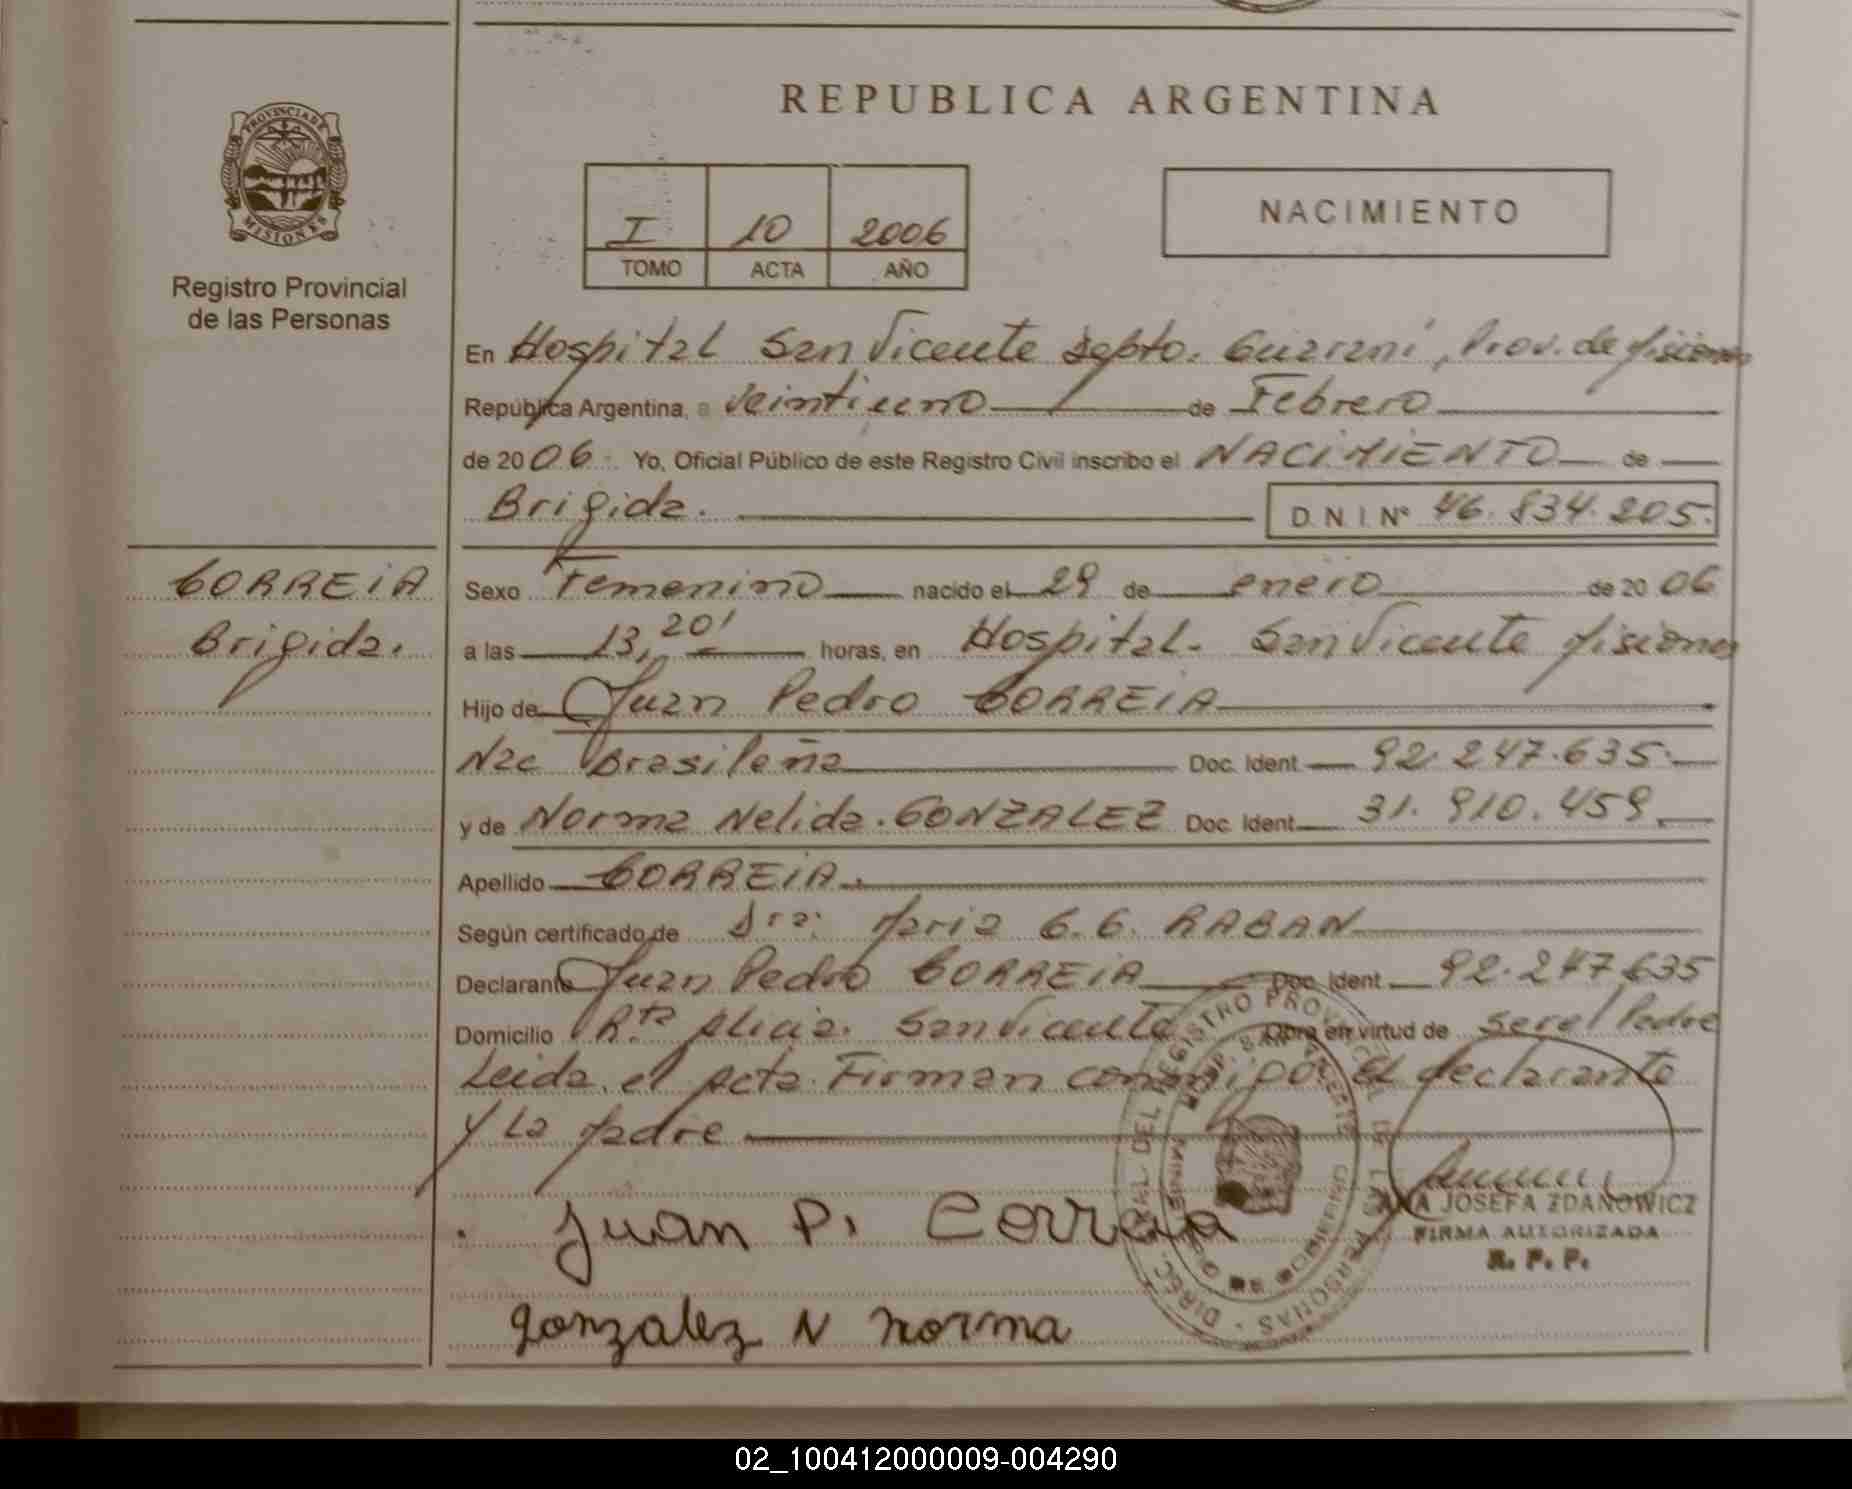 REPUBLICA ARGENTINA
PROVINCIA DE
MISIONES
Registro Provincial
de las Personas
I 10 2006
TOMO ACTA AÑO
NACIMIENTO
En Hospital San Vicente Depto. Guarani, Prov. de Misiones
República Argentina, a veintiuno de Febrero
de 2006. Yo, Oficial Público de este Registro Civil inscribo el NACIMIENTO de
Brigida. D.N.I. Nº 46.834.205.
CORREIA
Brigida.
Sexo Femenino nacido el 29 de enero de 2006
a las 13,20' horas, en Hospital. San Vicente Misiones
Hijo de Juan Pedro CORREIA
Nac Brasileña Doc. Ident 92.247.635.
y de Norma Nelida. GONZALEZ Doc. Ident. 31.910.459.
Apellido CORREIA.
Según certificado de Dra: Maria G.G. RABAN
Declarante Juan Pedro CORREIA Doc. Ident 92.247.635
Domicilio Rta Alicia. San Vicente Obra en virtud de ser el Padre
Leida el Acta Firman conmigo. El declarante
y La Madre
Juan P. Correia
gonzalez N norma
ANA JOSEFA ZDANOWICZ
FIRMA AUTORIZADA
R. P. P.
DIREC. GRAL DEL REGISTRO PROVINCIAL DE LAS PERSONAS
HOSP. SAN VICENTE
02_100412000009-004290